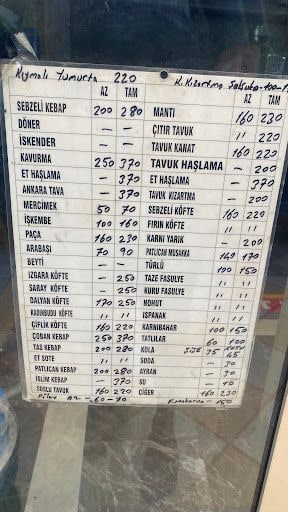 Kıymalı Yumurta 220
K. Kızartma
AZ TAM
SEBZELİ KEBAP 200 280
DÖNER — —
İSKENDER — —
KAVURMA 250 370
ET HAŞLAMA — 370
ANKARA TAVA — 370
MERCİMEK 50 70
İŞKEMBE 100 160
PAÇA 160 230
ARABAŞI 70 90
BEYTİ — —
IZGARA KÖFTE — 250
SARAY KÖFTE — 250
DALYAN KÖFTE 170 250
KADINBUDU KÖFTE " "
ÇİFLİK KÖFTE 160 220
ÇOBAN KEBAP 250 370
TAS KEBAP 200 280
ET SOTE " "
PATLICAN KEBAP 200 280
İSLİM KEBAP — 370
SOSLU TAVUK 160 220
Pilav AZ -60-70
AZ TAM
MANTI 160 230
ÇITIR TAVUK " 220
TAVUK KANAT 160 220
TAVUK HAŞLAMA — 200
ET HAŞLAMA — 370
TAVUK KIZARTMA — 200
SEBZELİ KÖFTE 160 220
FIRIN KÖFTE " "
KARNI YARIK — 200
PATLICAN MUSAKKA 140 170
TÜRLÜ 100 150
TAZE FASULYE " "
KURU FASULYE " "
NOHUT " "
ISPANAK " "
KARNIBAHAR 100 150
TATLILAR 60 100
KOLA ŞİŞE 35 KUTU 45
SODA — 30
AYRAN — 30
SU — 10
CİĞER 160 230
F. makarna - 150